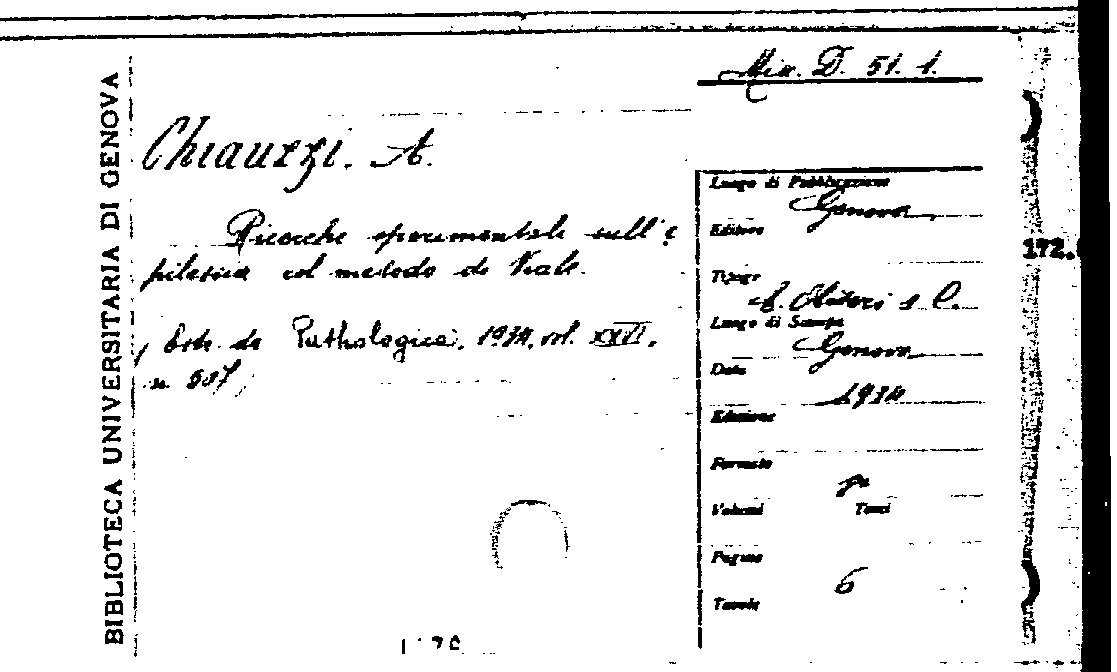 BIBLIOTECA UNIVERSITARIA DI GENOVA
Mix. D. 51. 1.
Chiauzzi. A.
Ricerche sperimentali sull'e
pilessia col metodo di Viale.
Estr. da Pathologica, 1934, vol. XXVI,
n. 507
Luogo di Pubblicazione
Genova
Editore
Tipogr
Luogo di Stampa
Genova
Data
1934
Edizione
Formato
8°
Volumi Tomi
Pagine
6
Tavole
172.